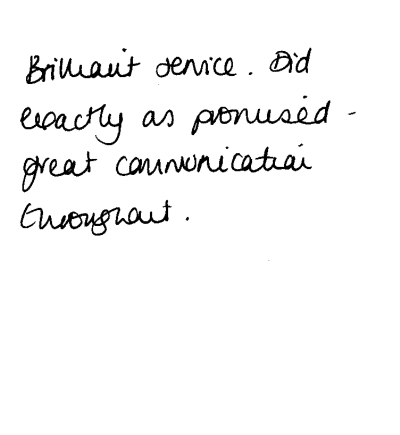 Brilliant service. Did
exactly as promised -
great communication
throughout.